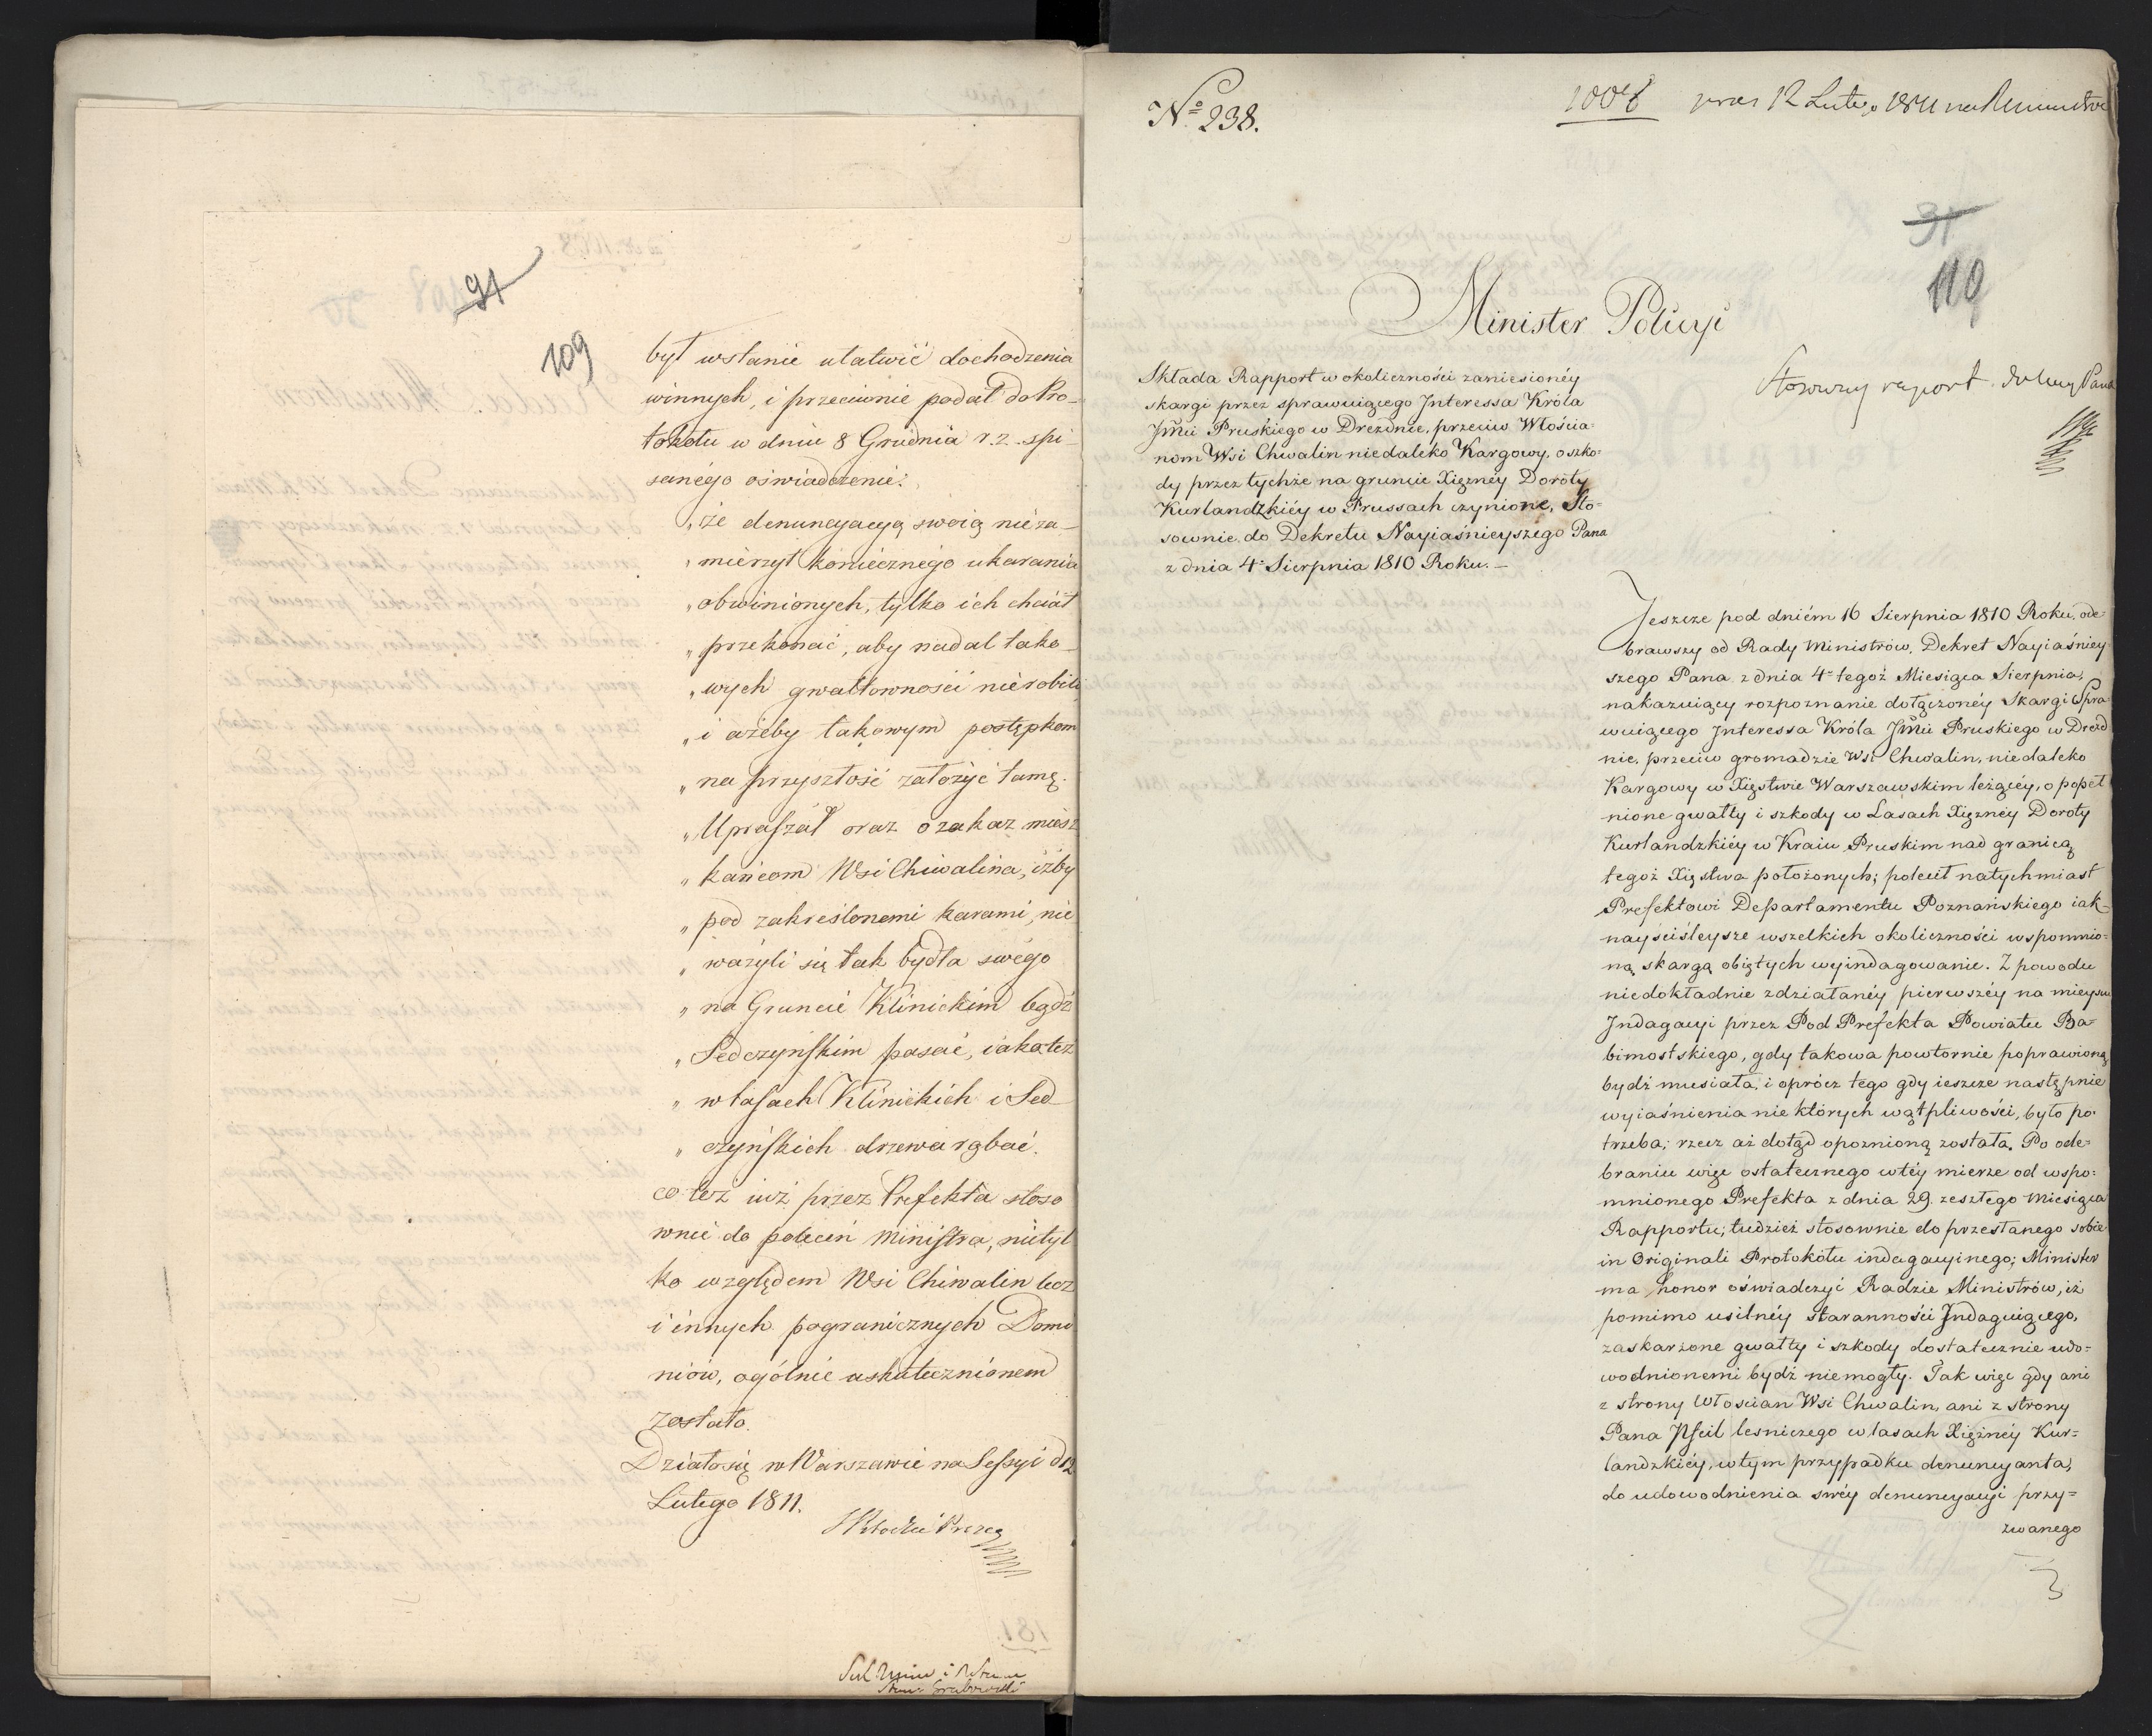 91
109
był wstanie ułatwić dochodzenia
winnych, i przeciwnie podał do Pro-
tokołu w dniu 8 Grudnia r. z. spi-
sanégo oświadczenie:
„że denuncyacyą swoią nie za-
„mierzył koniecznego ukarania
„obwinionych, tylko ich chciał
„przekonać, aby nadal tako-
„wych gwałtowności nierobili
„i ażeby takowym postępkom
„na przyszłość założyć tamę.
„Upraszał oraz o zakaz miesz
„kańcom Wsi Chiwalina, iżby
„pod zakreślonemi karami, nie
„ważyli się tak bydła swégo
„na Gruncie Klinickim bądź
„Sedczyńskim pasać, iako też
„w lasach Klinickich i Sed-
„czyńskich drzewa rąbać.
co też iuż przez Prefekta stoso
wnie do poleceń Ministra, nietyl
ko względem Wsi Chiwalin lecz
i innych pogranicznych Domi
niów, ogólnie uskutecznionem
zostało.
Działo się w Warszawie na Sessyi d 12
Lutego 1811.
Prezes
181.
Grabowski
No 238.
1008 12 Lutego 1811 na
91
110
Minister Policyi
Składa Rapport w okoliczności zaniesionéy
skargi przez sprawuiącego Interessa Króla
Jmci Pruskiego w Dreźdnie, przeciw Włościa-
nom Wsi Chwalin niedaleko Kargowy, o szko-
dy przez tychże na gruncie Xiężnéy Doroty
Kurlandzkiéy w Prussach czynione, Sto-
sownie do Dekretu Nayiaśnieyszego Pana
z dnia 4o Sierpnia 1810 Roku. —
Stosowny raport do Pana
Jeszcze pod dniém 16 Sierpnia 1810 Roku, ode-
brawszy od Rady Ministrów, Dekret Nayiaśniey-
szego Pana z dnia 4o tegoż Miesiąca Sierpnia,
nakazuiący rozpoznanie dołączonéy Skargi Spra-
wuiącego Interessa Króla Jmci Pruskiego w Drezd
nie, przeciw gromadzie Wsi Chwalin, niedaleko
Kargowy w Xięstwie Warszawskim leżącéy, o popeł
nione gwałty i szkody w Lasach Xiężnéy Doroty
Kurlandzkiéy w Kraiu Pruskim nad granicą
tegoż Xięstwa położonych; polecił natychmiast
Prefektowi Departamentu Poznańskiego iak-
nayściśleysze wszelkich okoliczności wspomnio-
ną skargą obiętych wyindagowanie. Z powodu
niedokładnie zdziałanéy pierwszéy na mieyscu
Indagacyi przez Pod Prefekta Powiatu Ba-
bimostskiego, gdy takowa powtornie poprawioną
bydź musiała, i oprócz tego gdy ieszcze następnie
wyiaśnienia nie których wątpliwości, było po-
trzeba; rzecz aż dotąd opoznioną została. Po ode-
braniu więc ostatecznego w téy mierze od wspo-
mnionego Prefekta z dnia 29 zeszłego Miesiąca
Rapportu, tudzież stosownie do przesłanego sobie
in Originali Protokołu indagacyinego; Minister
ma honor oświadczyć Radzie Ministrów, iż
pomimo usilnéy staranności Indaguiącego,
zaskarżone gwałty i szkody dostatecznie udo-
wodnionemi bydź niemogły. Tak więc gdy ani
z strony Włościan Wsi Chwalin, ani z strony
Pana Pfeil lesniczego w lasach Xiężnéy Kur-
landzkiéy, w tym przypadku denuncyanta,
do udowodnienia swéy denuncyacyi przy-
zwanego